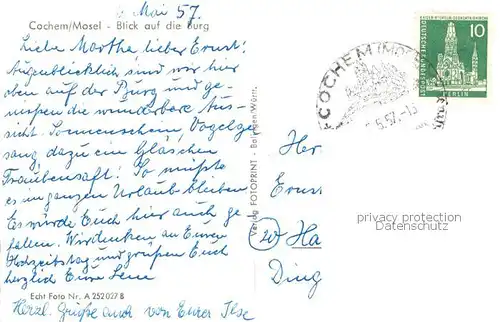 6. Mai 57.
Cochem/Mosel - Blick auf die Burg
Liebe Martha lieber Ernst!
Augenblicklich sind wir hier
oben auf der Burg und ge-
niessen die wunderbare Aus-
sicht. Sonnenschein, Vogelge
sang, dazu ein Gläschen
Traubensaft! So müßte
es im ganzen Urlaub bleiben.
Es würde Euch hier auch ge
fallen. Wir denken an Euren
Hochzeitstag und grüßen Euch
herzlich Eure Lene
Echt Foto Nr. A 252 027 B
Herzl. Grüße auch von Eurer Ilse
Verlag FOTOPRINT - Balingen/Württ.
DEUTSCHE BUNDESPOST
10
BERLIN
COCHEM (MOSEL
5.57.-15
Her
Ernst
Ha
Ding
privacy protection
Datenschutz